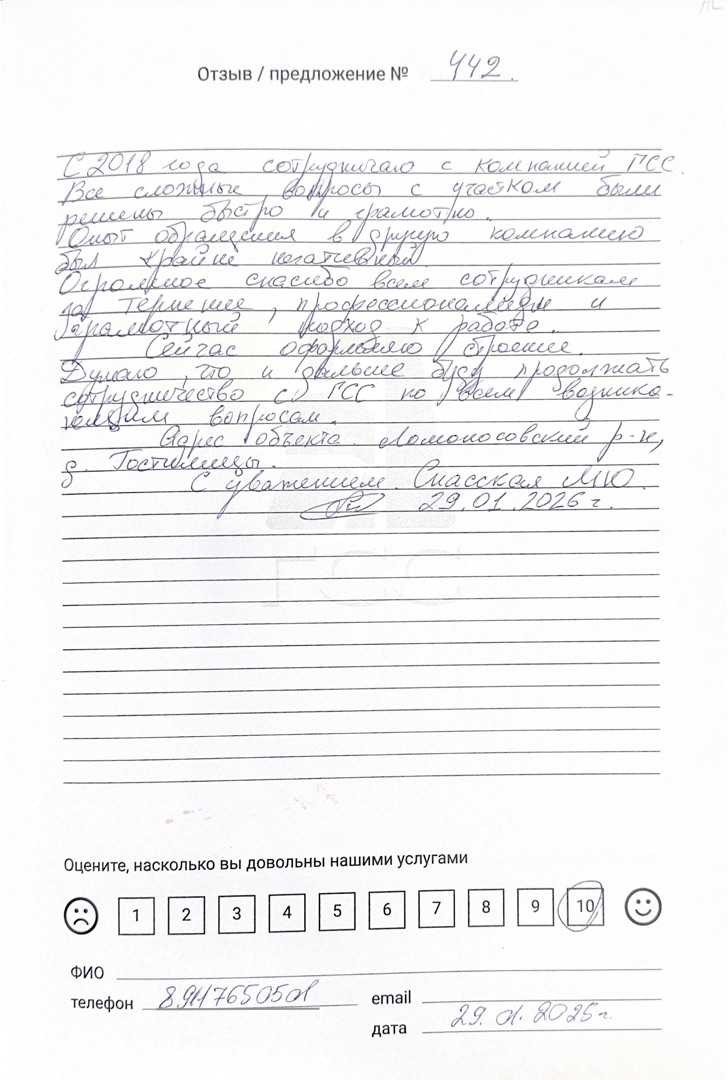 Отзыв / предложение № 442.
С 2018 года сотрудничаю с компанией ГСС.
Все сложные вопросы с участком были
решены быстро и грамотно.
Опыт обращения в другую компанию
был крайне негативный.
Огромное спасибо всем сотрудникам
за терпение, профессионализм и
грамотный подход к работе.
Сейчас оформляю строение.
Думаю, что и дальше буду продолжать
сотрудничество с ГСС по всем возника-
ющим вопросам.
Адрес объекта. Ломоносовский р-н,
д. Гостилицы.
С уважением. Спасская МЮ.
29.01.2026 г.
ГСС
Оцените, насколько вы довольны нашими услугами
1 2 3 4 5 6 7 8 9 10
ФИО
телефон 89117650501 email
дата 29.01.2025 г.